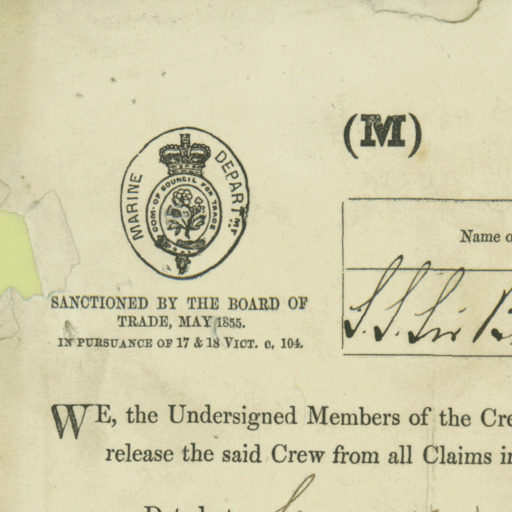 (M)
MARINE DEPARTMT
COM. OF COUNCIL FOR TRADE
SANCTIONED BY THE BOARD OF
TRADE, MAY 1855.
IN PURSUANCE OF 17 & 18 VICT. c. 104.
Name o
S.S. Sir
WE, the Undersigned Members of the Cre
release the said Crew from all Claims in